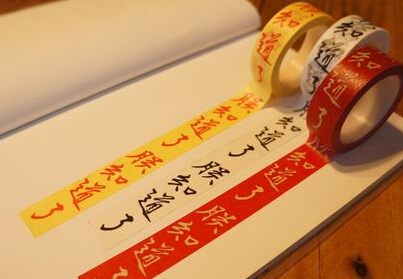 知道
朕知道了
朕知道了
知道
知道了
朕知道了
知道
知道了
朕知道了